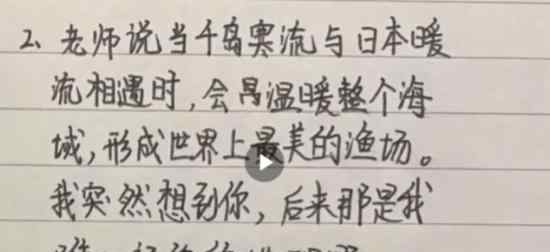 2、老师说当千岛寒流与日本暖
流相遇时,会温暖整个海
域,形成世界上最美的渔场。
我突然想到你,后来那是我